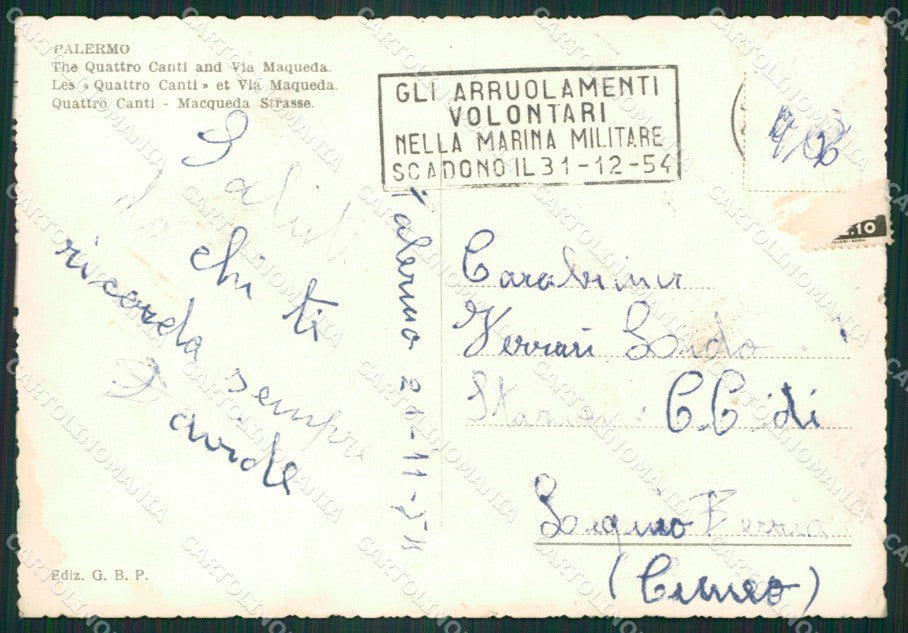 PALERMO
The Quattro Canti and Via Maqueda.
Les «Quattro Canti» et Via Maqueda.
Quattro Canti - Macqueda Strasse.
GLI ARRUOLAMENTI
VOLONTARI
NELLA MARINA MILITARE
SCADONO IL 31-12-54
Saluti
da
chi ti
ricorda sempre
Davide
Palermo 21-11-54
Carabinier
Ferrari Lido
Stazione C.C. di
(Cuneo)
Ediz. G. B. P.
CARTOLINOMANIA